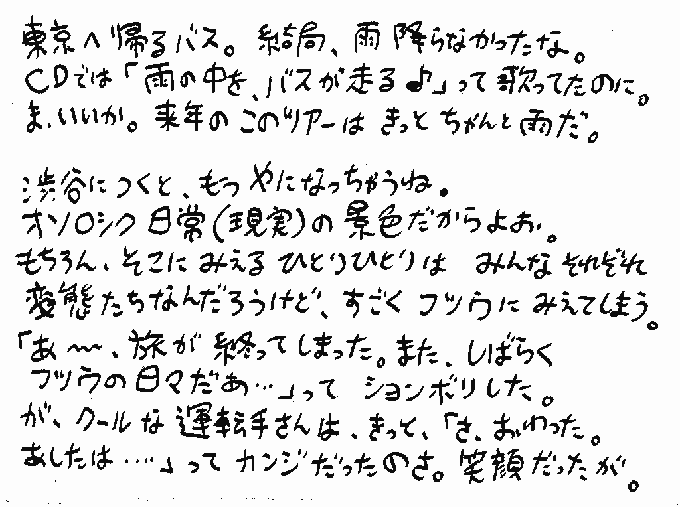 東京へ帰るバス。結局、雨降らなかったな。
CDでは「雨の中を、バスが走る♪」って歌ってたのに。
ま、いいか。来年のこのツアーは きっと ちゃんと雨だ。
渋谷につくと、もつ やになっちゃうね。
オソロシク日常(現実)の景色だからよお。
もちろん、そこに みえる ひとりひとりは みんな それぞれ
変態たちなんだろうけど、すごく フツウに みえてしまう。
「あ〜〜、旅が 終ってしまった。また、しばらく
フツウの日々だあ…」って ションボリした。
が、クールな運転手さんは、きっと、「さ、おわった。
あしたは‥‥」って カンジだったのさ。笑顔だったが。